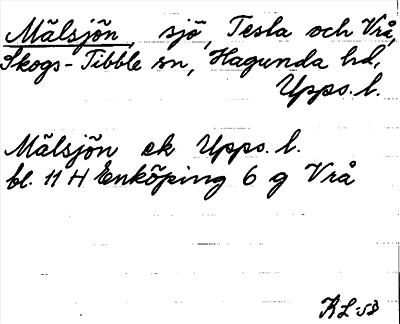 Mälsjön, sjö, Tesla och Vrå,
Skogs-Tibble sn, Hagunda hd,
Upps. l.
Mälsjön ek Upps. l.
bl. 11 H Enköping 6 g Vrå
KL :58